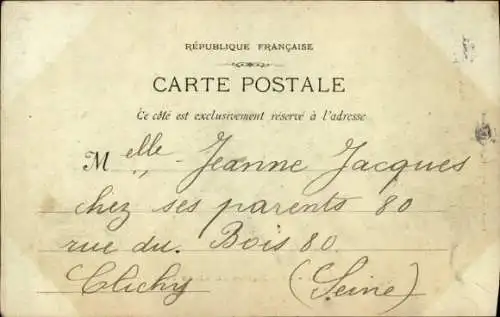 RÉPUBLIQUE FRANÇAISE
CARTE POSTALE
Ce côté est exclusivement réservé à l'adresse
Melle Jeanne Jacques
chez ses parents 80
rue du. Bois 80
Clichy (Seine)